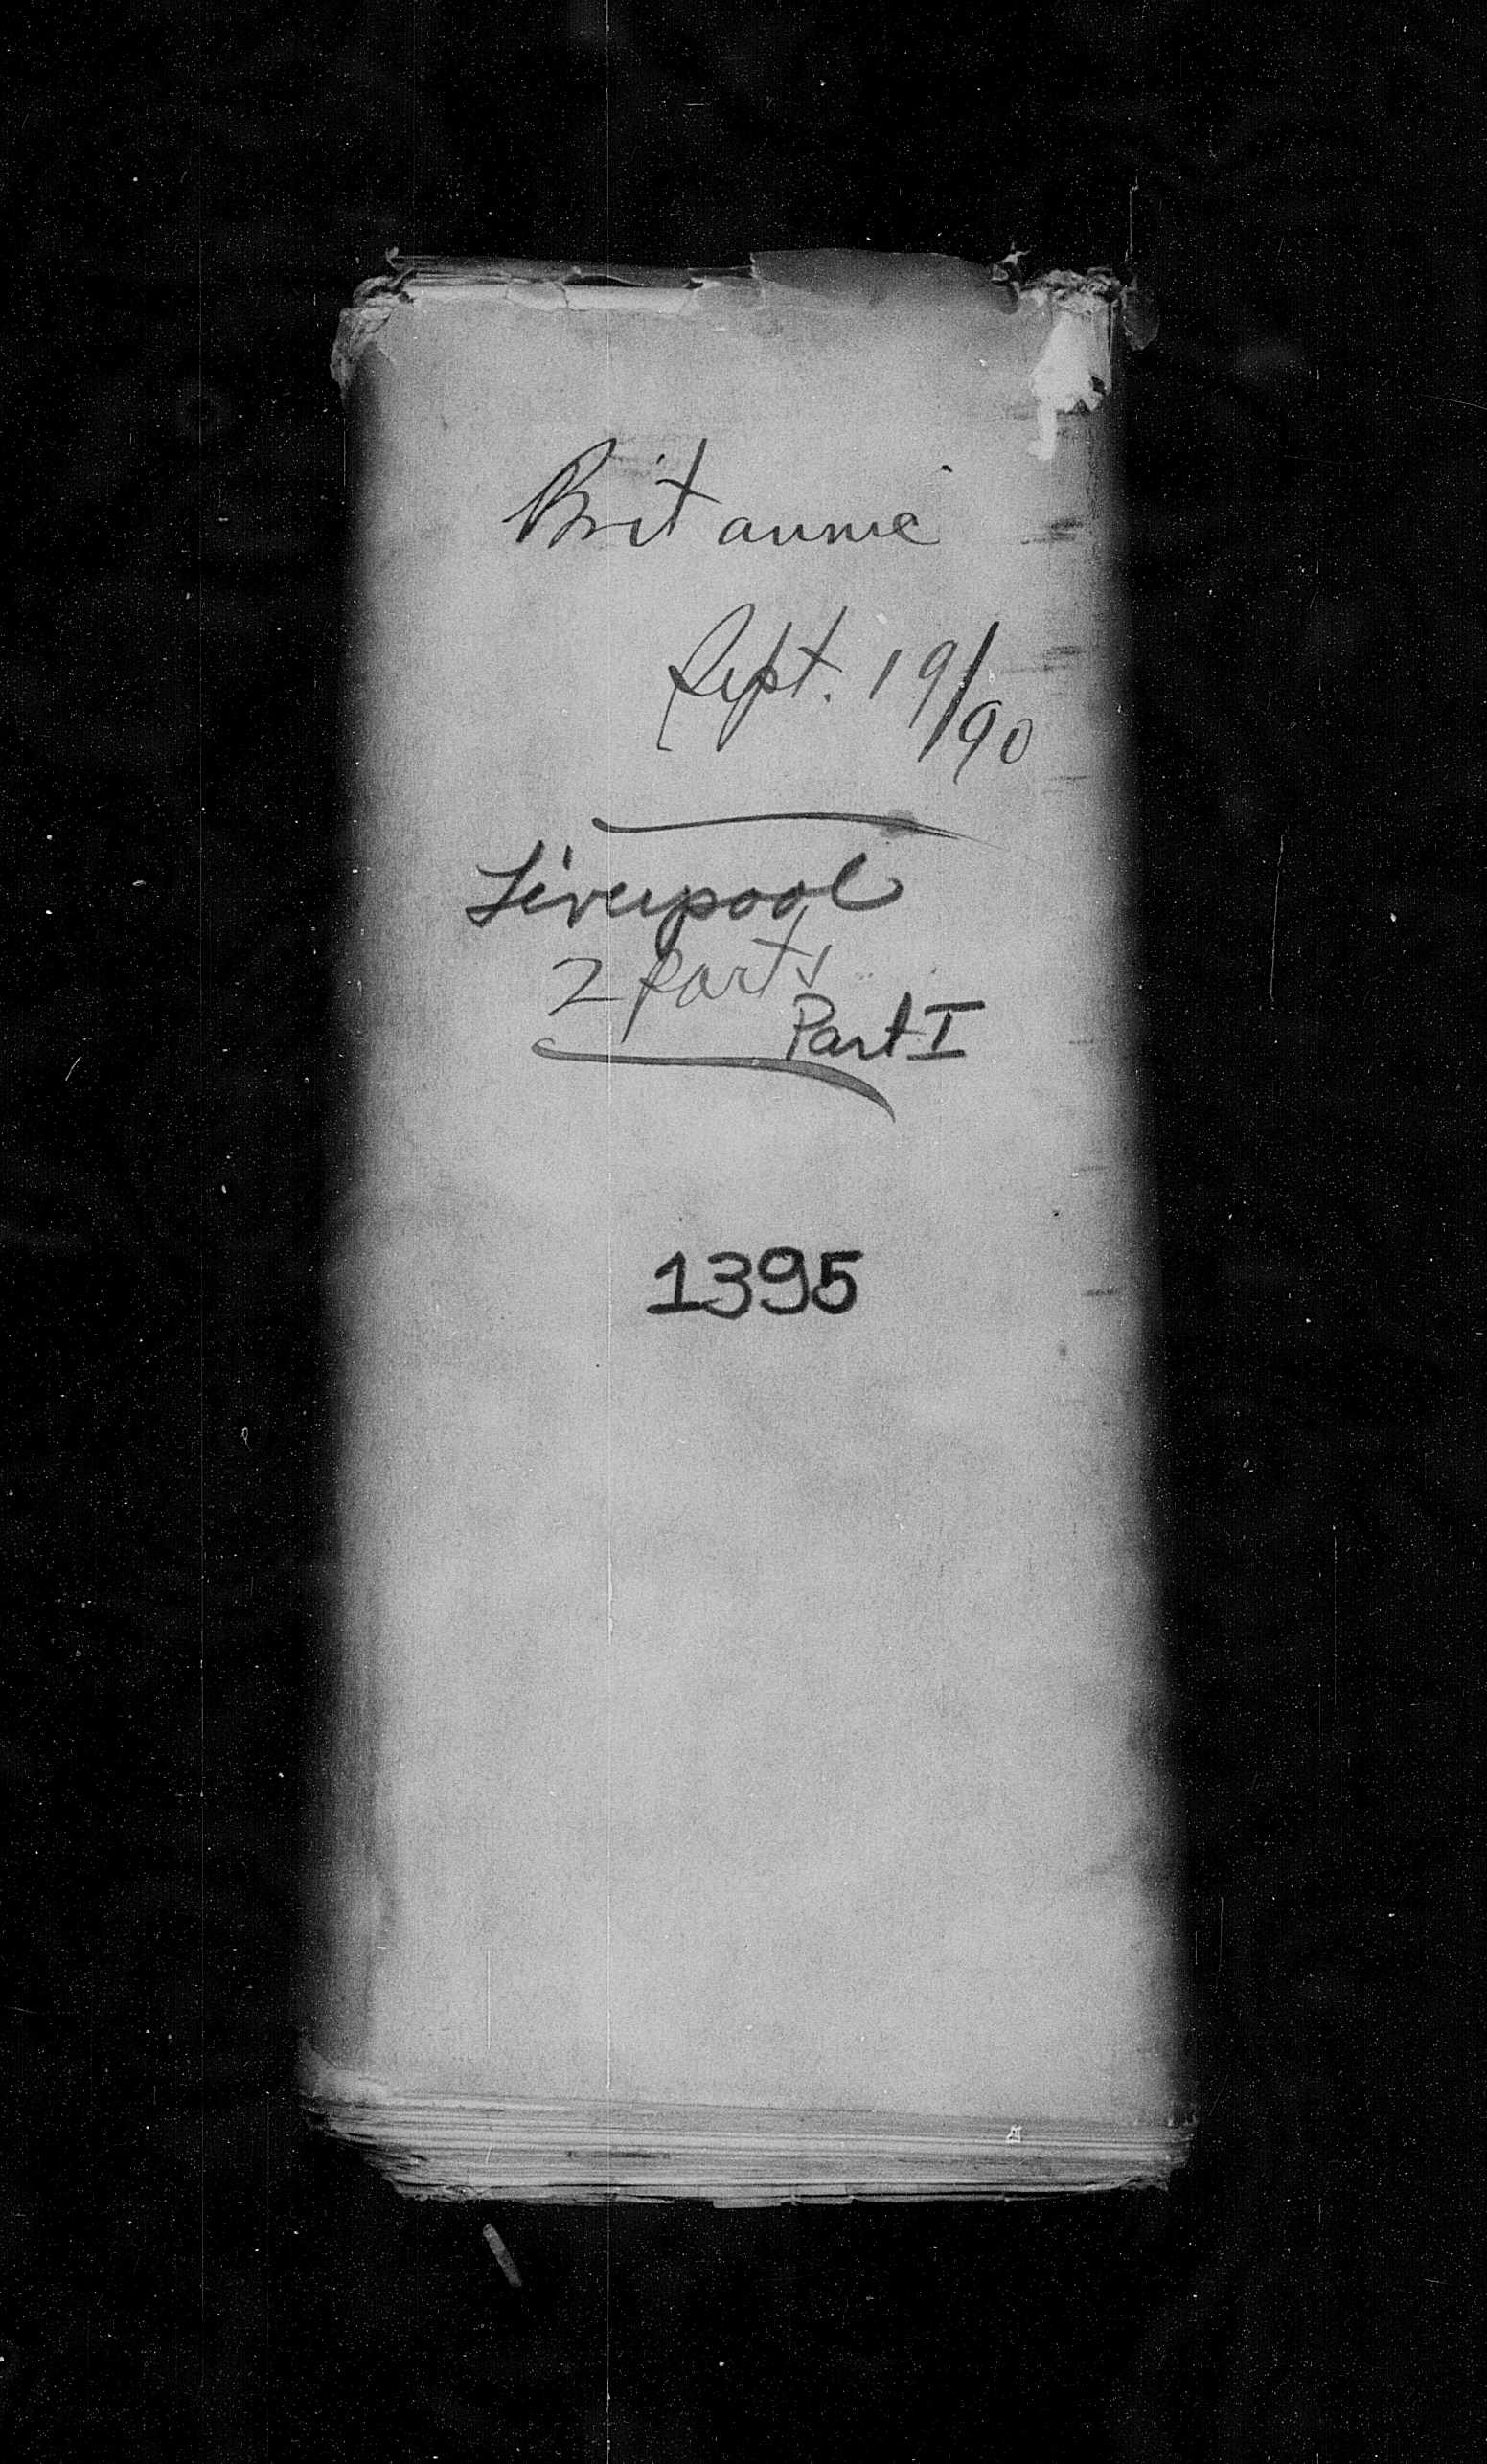 Britannic
Sept. 19/90
Liverpool
2 parts
Part I
1395